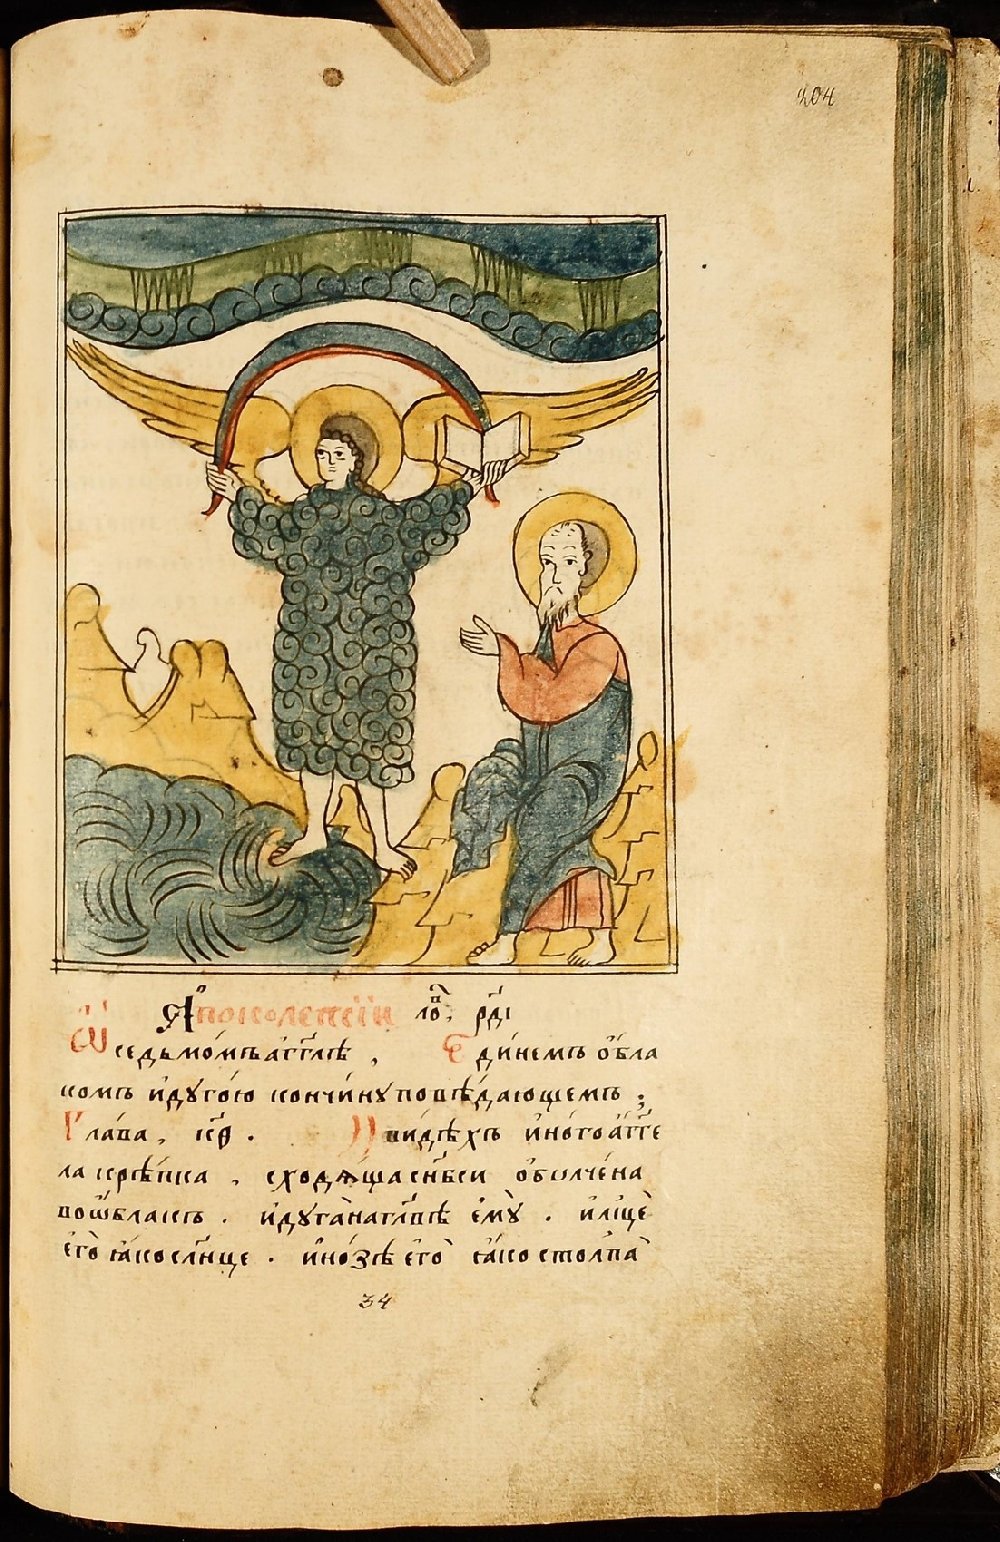 204
Апокалепсїи
Ѡ седьмо́мъ а́гг҃лѣ, Е҆ди́немъ о҆́бла
комъ и҆ дуго́ю кончи́ну повѣ́дающемъ :
Глава̀, к҃ѳ. И҆ ви́дѣхъ и҆но́го а҆́гг҃е
ла крѣ́пка, сходѧ́ща с нб҃си ѻ҆болче́на
во ѡ҆́блакъ. и҆ дуга̀ на гл҃вѣ є҆мꙋ̀. и҆ лицѐ
є҆гѡ̀ ꙗ҆́ко сл҃нце. и҆ но́зѣ є҆гѡ̀ ꙗ҆́ко столпа̀
34